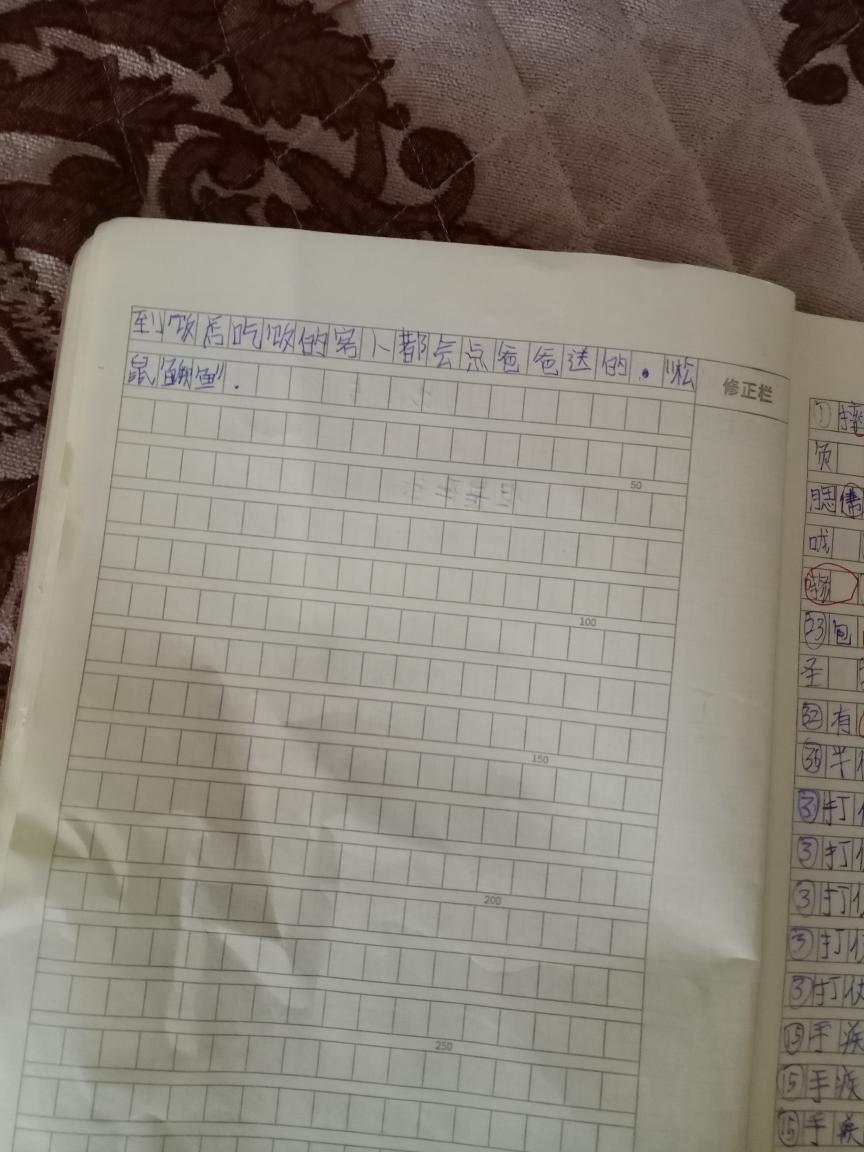 到饭店吃饭的客人都会点爸爸送的。“松
鼠 鱼”.
修正栏
50
100
150
200
250
①
㉓包
圣
㉜有
㉟半
③打
③打
③打
③打
③打仗
⑮手疾
⑮手疾
⑮手疾